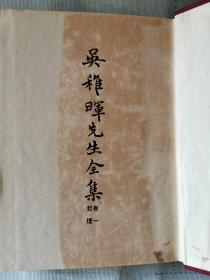 吳稚暉先生全集
卷一
哲理